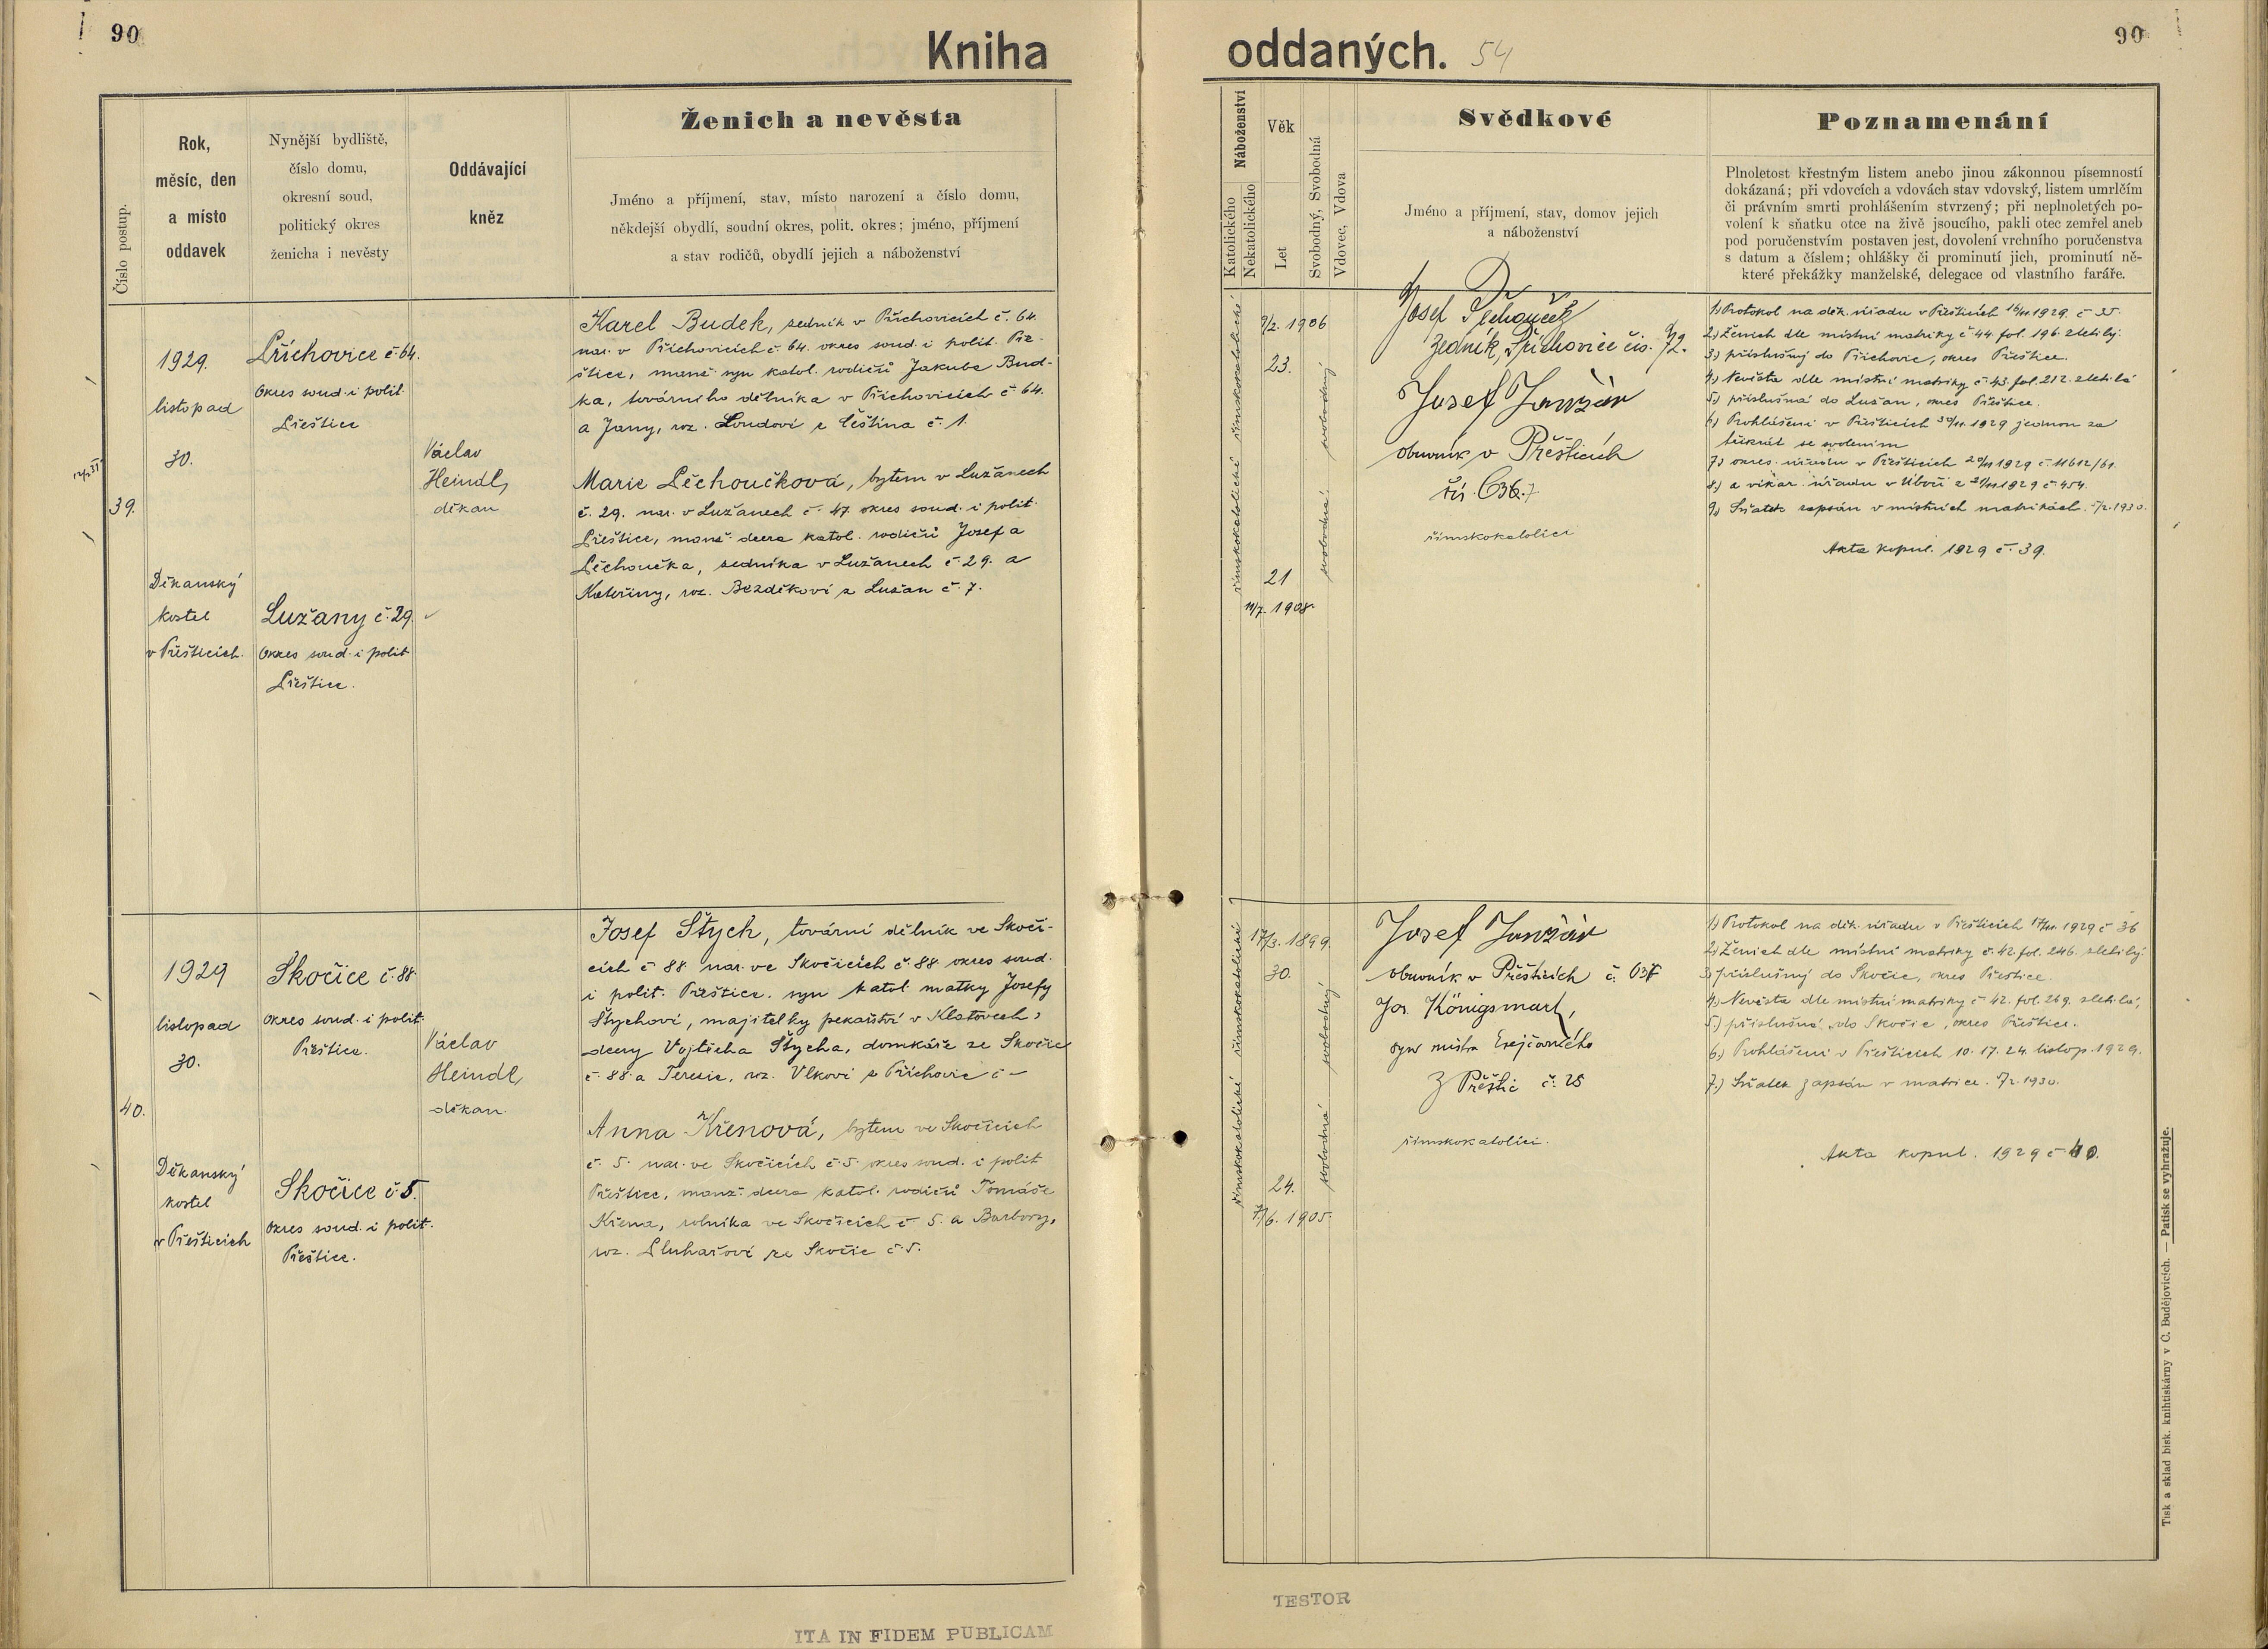 90
Kniha
oddaných.
54
90
Číslo postup.
Rok,
měsíc, den
a místo
oddavek
Nynější bydliště,
číslo domu,
okresní soud,
politický okres
ženicha i nevěsty
Oddávající
kněz
Ženich a nevěsta
Jméno a příjmení, stav, místo narození a číslo domu,
někdejší obydlí, soudní okres, polit. okres; jméno, příjmení
a stav rodičů, obydlí jejich a náboženství
Náboženství
Katolického
Nekatolického
Věk
Let
Svobodný, Svobodná
Vdovec, Vdova
Svědkové
Jméno a příjmení, stav, domov jejich
a náboženství
Poznamenání
Plnoletost křestným listem anebo jinou zákonnou písemností
dokázaná; při vdovcích a vdovách stav vdovský, listem umrlčím
či právním smrti prohlášením stvrzený; při neplnoletých po-
volení k sňatku otce na živě jsoucího, pakli otec zemřel aneb
pod poručenstvím postaven jest, dovolení vrchního poručenstva
s datum a číslem; ohlášky či prominutí jich, prominutí ně-
které překážky manželské, delegace od vlastního faráře.
39.
1929.
listopad
30.
Děkanský
kostel
v Přešticích.
Příchovice č. 64.
Okres soud. i polit.
Přeštice
Lužany č. 29.
Okres soud. i polit
Přeštice.
Václav
Heindl,
děkan
Karel Budek, zedník v Příchovicích č. 64.
nar. v Příchovicích č. 64. okres soud. i polit. Pře-
štice, manž. syn katol. rodičů Jakuba Bud-
ka, továrního dělníka v Příchovicích č. 64.
a Jany, roz. Loudové z Češtína č. 1.
Marie Pěchoučková, bytem v Lužanech
č. 29. nar. v Lužanech č. 47. okres soud. i polit.
Přeštice, manž. dcera katol. rodičů Josefa
Pěchoučka, zedníka v Lužanech č. 29. a
Kateřiny, roz. Bezděkové z Lužan č. 7.
římskokatolické římskokatolické
9/2. 1906
23.
21
11/7. 1908.
svobodná svobodný
Josef Pěchouček
Zedník, Příchovice čís. 72.
Josef Janžár
obuvník v Přešticích
čís. 636.
římskokatolíci
1) Protokol na děk. úřadu v Přešticích 16/11 1929. č. 35.
2) Ženich dle místní matriky č. 44. fol. 196. zletilý.
3) příslušný do Příchovic, okres Přeštice.
4) Nevěsta dle místní matriky č. 43. fol. 212. zletilá
5.) příslušná do Lužan, okres Přeštice.
6) Prohlášení v Přešticích 30/11. 1929 jednou za
třikrát se svolením
7.) okres. úřadu v Přešticích 20/11 1929 č. 11612/61.
8.) a vikar. úřadu v z 21/11 1929 č. 454.
9.) Sňatek zapsán v místních matrikách. 5/2. 1930.
Akta kopul. 1929 č. 39.
40.
1929
listopad
30.
Děkanský
kostel
v Přešticích
Skočice č. 88
okres soud. i polit.
Přeštice.
Skočice č. 5.
okres soud. i polit.
Přeštice.
Václav
Heindl,
děkan.
Josef Štych, tovární dělník ve Skoči-
cích č. 88. nar. ve Skočicích č. 88. okres soud.
i polit. Přeštice. syn katol. matky Josefy
Štychové, majitelky pekařství v Klatovech,
dcery Vojtěcha Štycha, domkáře ze Skočic
č. 88. a Terezie, roz. Vlkové z Příchovic č. –
Anna Křenová, bytem ve Skočicích
č. 5. nar. ve Skočicích č. 5. okres soud. i polit
Přeštice, manž. dcera katol. rodičů Tomáše
Křena, rolníka ve Skočicích č. 5. a Barbory,
roz. Pluhařové ze Skočic č. 5.
římskokatolické římskokatolické
17/3. 1899.
30.
24.
7/6. 1905.
svobodná svobodný
Josef Janžár
obuvník v Přešticích č. 637
Jos. Königsmark,
syn mistra krejčovského
z Přeštic č. 25
římskokatolíci.
1.) Protokol na děk. úřadu v Přešticích 17/11. 1929 č. 36
2.) Ženich dle místní matriky č. 42. fol. 246. zletilý.
3.) příslušný do Skočic, okres Přeštice.
4.) Nevěsta dle místní matriky č. 42. fol. 269. zletilá,
5.) příslušná do Skočic, okres Přeštice.
6.) Prohlášení v Přešticích 10. 17. 24. listop. 1929.
7.) Sňatek zapsán v matrice. 5/2. 1930.
Akta kopul. 1929 č. 40.
Tisk a sklad bisk. knihtiskárny v Č. Budějovicích. — Patisk se vyhražuje.
TESTOR
ITA IN FIDEM PUBLICAM